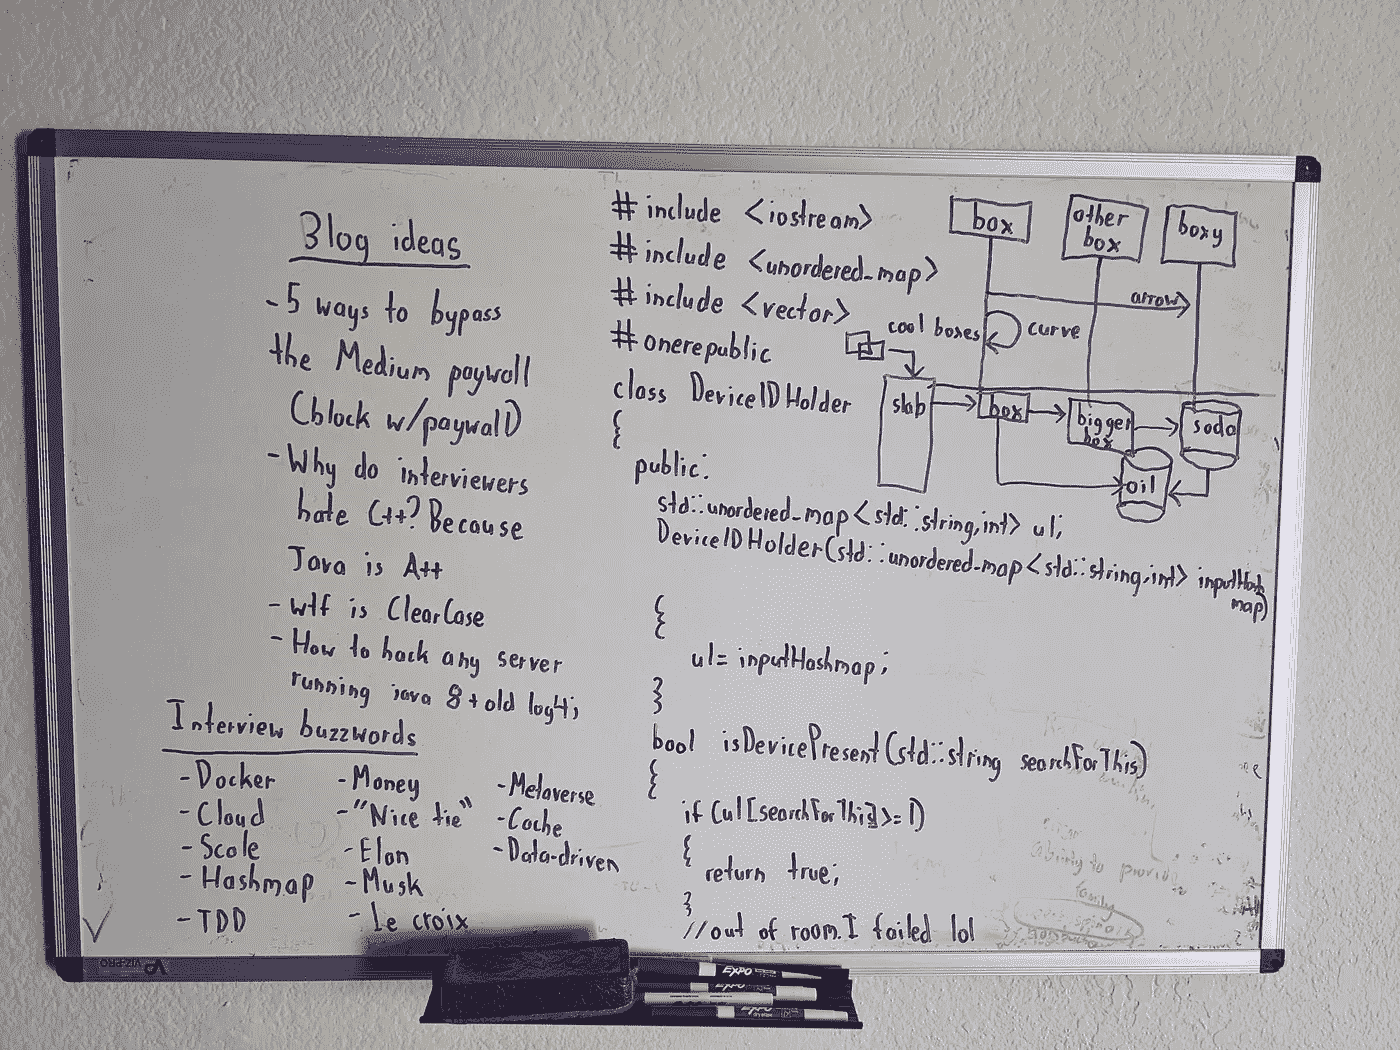 Blog ideas
- 5 ways to bypass
the Medium paywall
(block w/paywall)
- Why do interviewers
hate C++? Because
Java is A++
- wtf is ClearCase
- How to hack any server
running java 8 + old log4j
Interview buzzwords
- Docker
- Cloud
- Scale
- Hashmap
- TDD
- Money
- "Nice tie"
- Elon
- Musk
- Le croix
- Metaverse
- Cache
- Data-driven
# include <iostream>
# include <unordered_map>
# include <vector>
# onerepublic
class DeviceIDHolder
{
public:
std::unordered_map<std::string,int> ul;
DeviceIDHolder(std::unordered_map<std::string,int> inputHash
map)
{
ul= inputHashmap;
}
bool isDevicePresent(std::string searchForThis)
{
if (ul[searchForThis]>= 1)
{
return true;
}
//out of room. I failed lol
box
other
box
boxy
arrow
cool boxes
curve
slab
box
bigger
box
soda
oil
ability to provide
family
EXPO
EXPO
EXPO